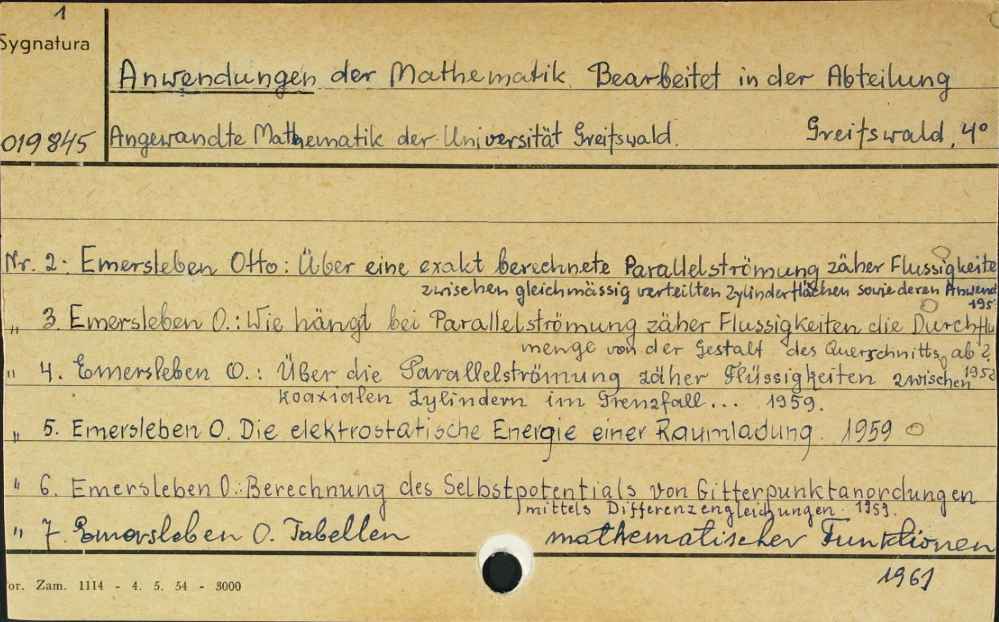 1
Sygnatura
Anwendungen der Mathematik. Bearbeitet in der Abteilung
019845 Angewandte Mathematik der Universität Greifswald. Greifswald, 4°
Nr. 2. Emersleben Otto: Über eine exakt berechnete Parallelströmung zäher Flussigkeite
zwischen gleichmässig verteilten Zylinderflächen sowie deren Anwend
195
„ 3. Emersleben O.: Wie hängt bei Parallelströmung zäher Flussigkeiten die Durchflu
menge von der Gestalt des Querschnitts ab?
„ 4. Emersleben O.: Über die Parallelströmung zäher Flüssigkeiten zwischen
koaxialen Zylindern im Grenzfall... 1959.
„ 5. Emersleben O. Die elektrostatische Energie einer Raumladung. 1959
„ 6. Emersleben O.: Berechnung des Selbstpotentials von Gitterpunktanordungen
mittels Differenzengleichungen. 1959.
„ 7. Emersleben O. Tabellen mathematischer Funktionen
1961
or. Zam. 1114 - 4. 5. 54 - 3000